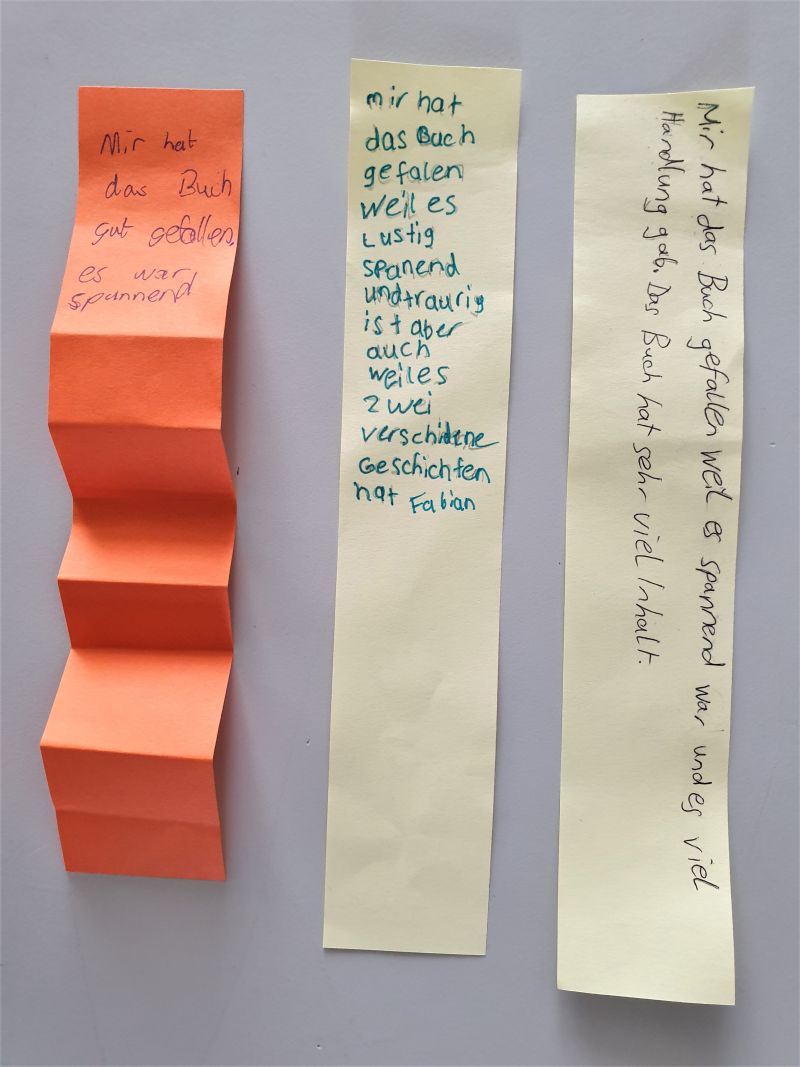 Mir hat
das Buch
gut gefallen,
es war
spannend
mir hat
das Buch
gefalen
weil es
Lustig
spanend
undtraurig
ist aber
auch
weiles
zwei
verschidene
Geschichten
hat Fabian
Mir hat das Buch gefallen weil es spannend war und es viel
Handlung gab. Das Buch hat sehr viel Inhalt.